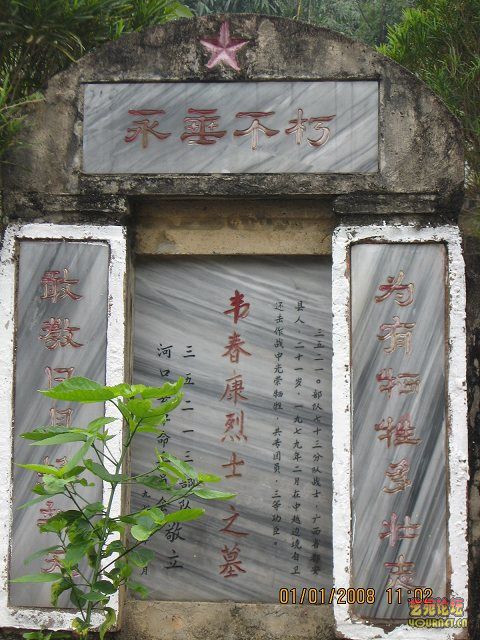 永垂不朽
为有牺牲多壮志
三五二一〇部队七十三分队战士，广西
县人，二十一岁，一九七九年二月在中越边境自卫
还击作战中光荣牺牲，共青团员，三等功臣。
韦春康烈士之墓
三五二一三部队
河口 敬立
月
敢教日月
01/01/2008 11:02
艺苑论坛
YOURNET.CN